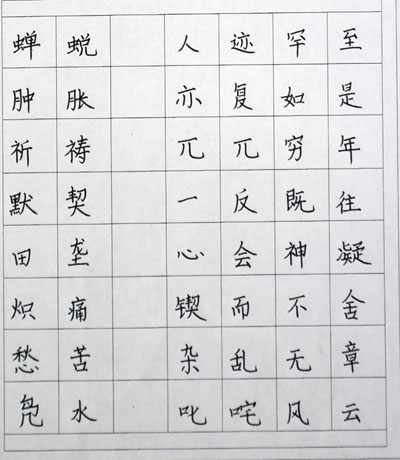 蝉蜕 人迹罕至
肿胀 亦复如是
祈祷 兀兀穷年
默契 一反既往
田垄 心会神凝
炽痛 锲而不舍
愁苦 杂乱无章
凫水 叱咤风云